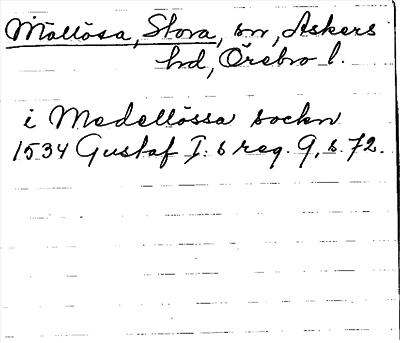 Mellösa, Stora, sn, Askers
hd, Örebro l.
i Medellössa sockn
1534 Gustaf I:s reg. 9, s. 72.